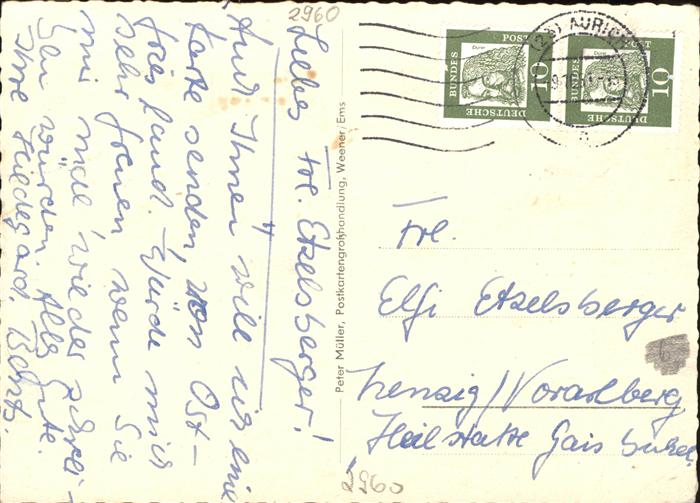 2960
Liebes Frl. Etzelsberger!
Auch Ihnen will ich eine
Karte senden, von Ost-
friesland. Würde mich
sehr freuen wenn Sie
mir mal wieder schrei-
ben würden. Alles Gute.
Ihre Hildegard
Peter Müller, Postkartengroßhandlung, Weener/Ems
DEUTSCHE BUNDESPOST
Dürer
10
DEUTSCHE BUNDESPOST
Dürer
10
(23) AURICH
Frl.
Elfi Etzelsberger
/Vorarlberg
Heilstätte Gais
6
2960